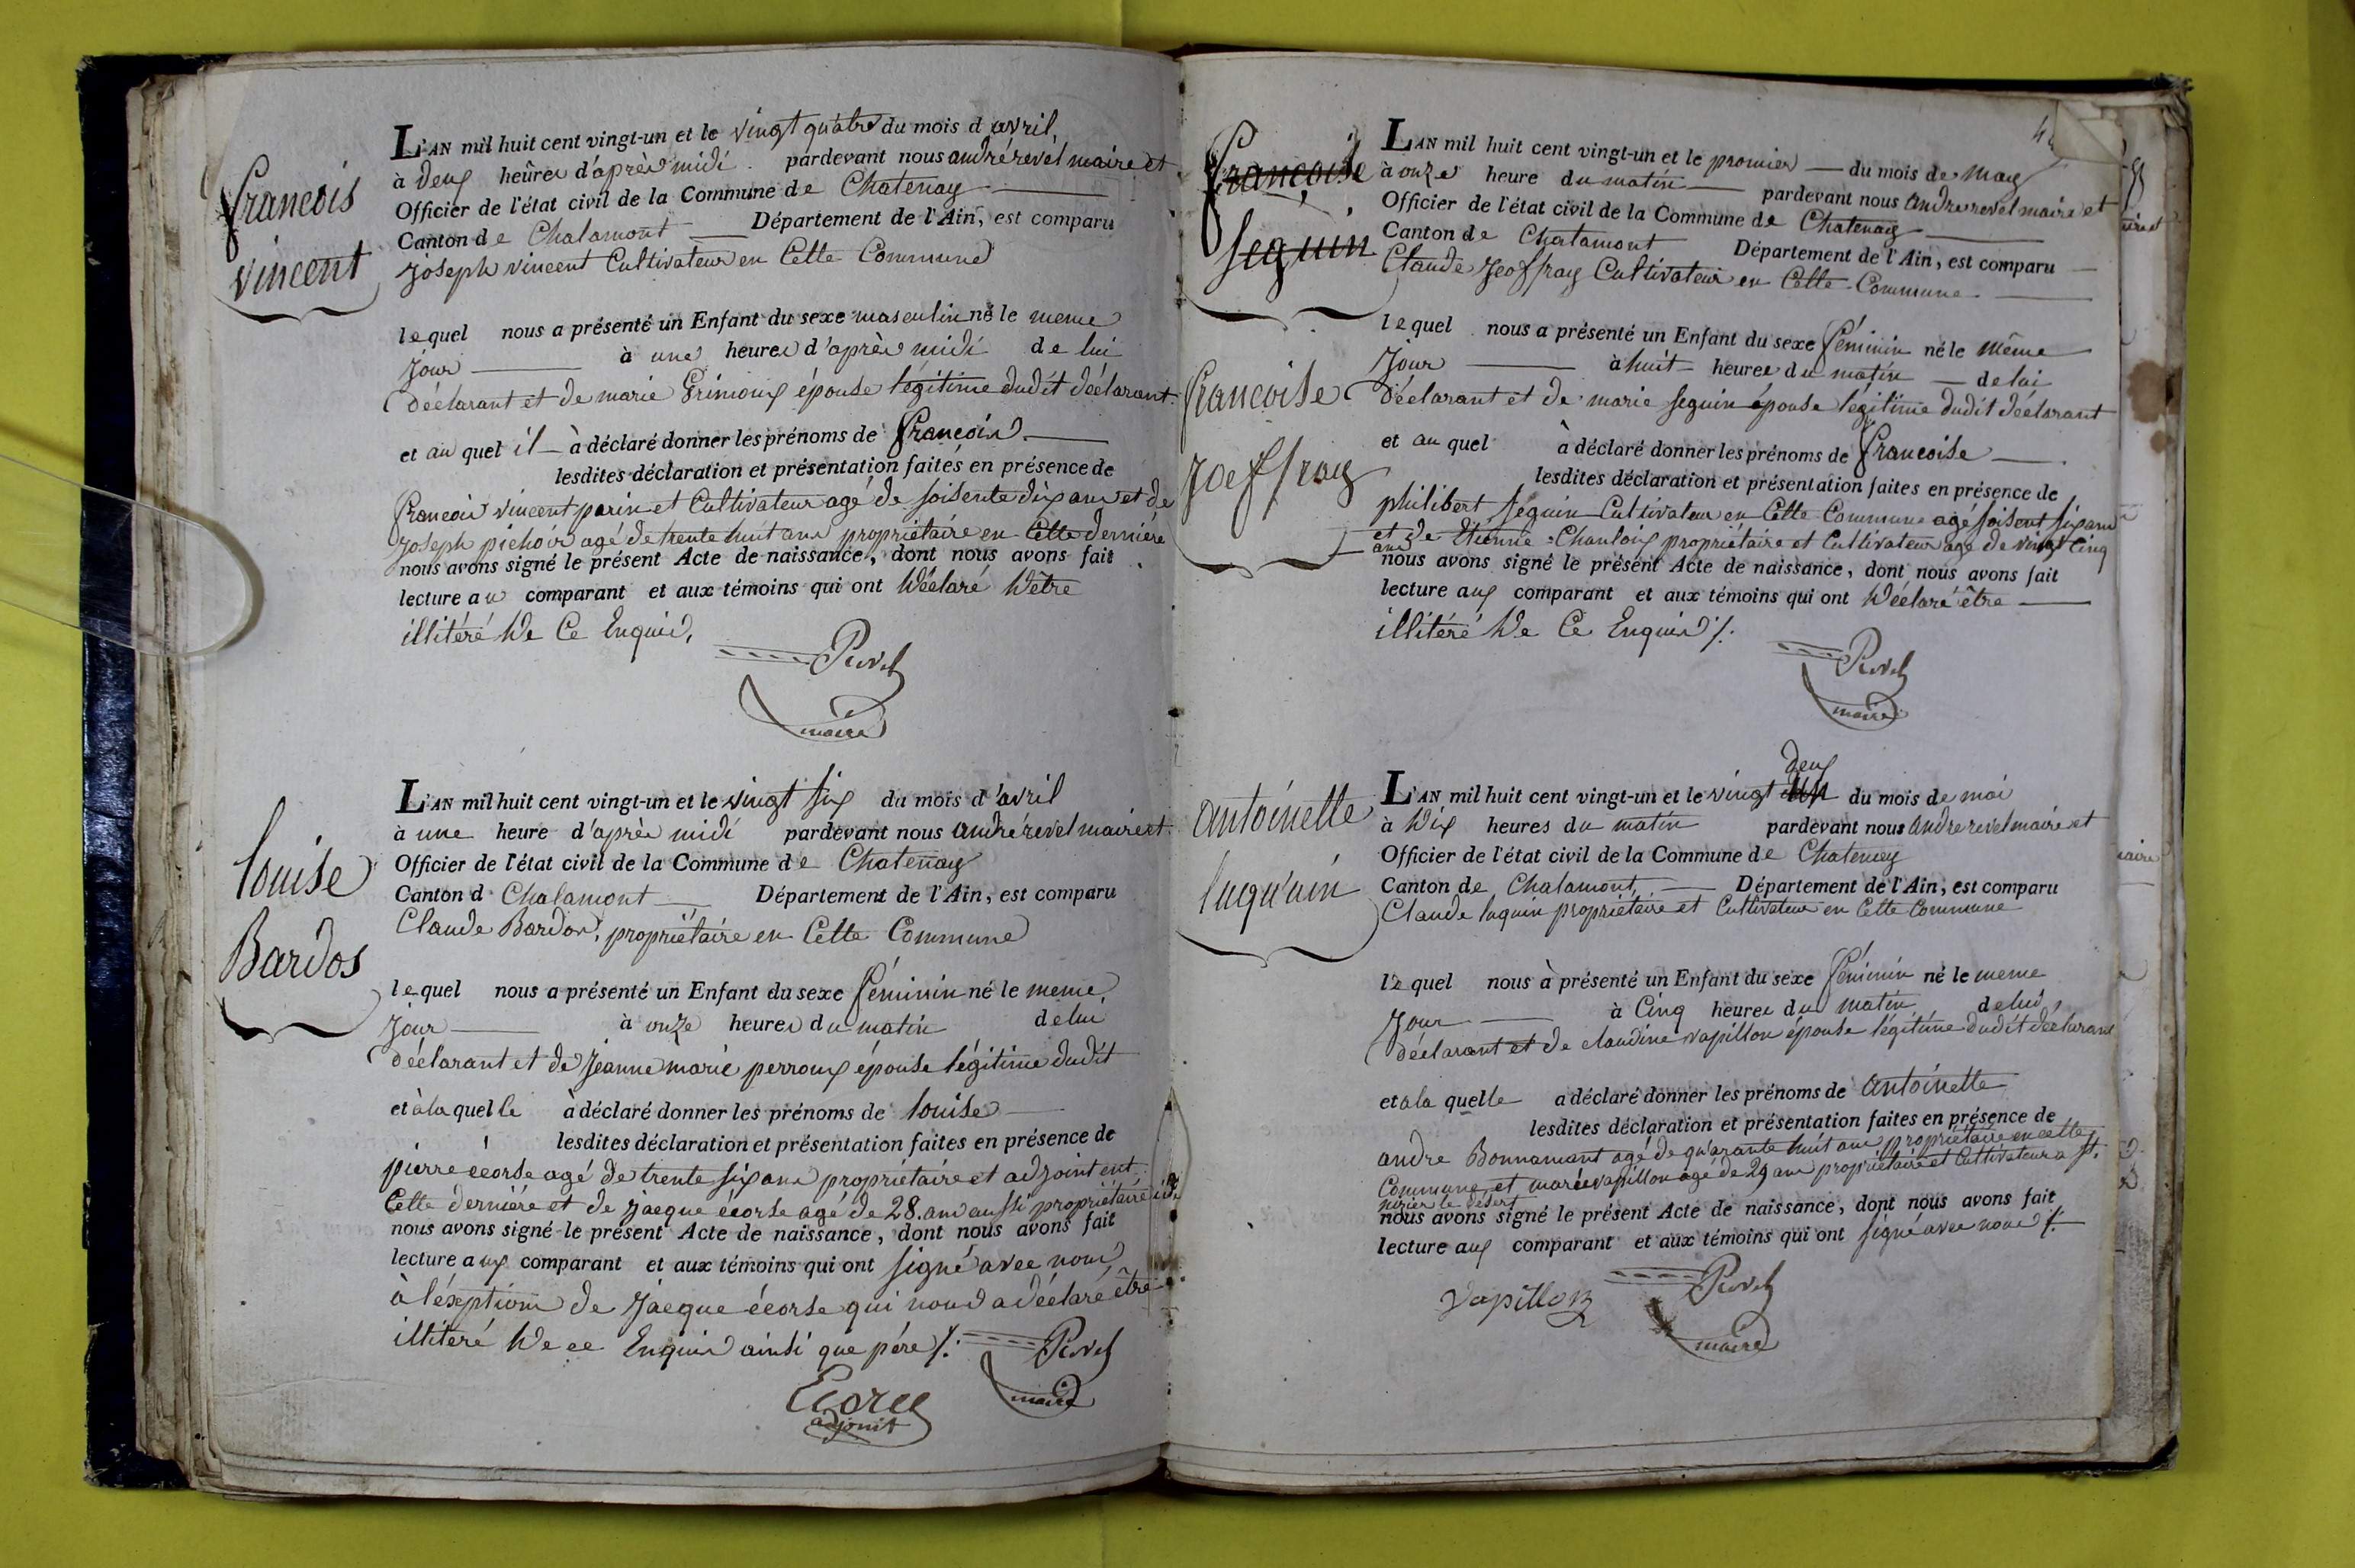 françois
vincent
L'AN mil huit cent vingt-un et le vingt quatre du mois d avril,
à deux heures d'après midi pardevant nous andré revel maire et
Officier de l'état civil de la Commune de Chatenay
Canton de Chalamont Département de l'Ain, est comparu
joseph vincent Cultivateur en Cette Commune
lequel nous a présenté un Enfant du sexe masculin né le meme
jour à une heures d'après midi de lui
déclarant et de marie Grinioux épouse légitime dudit déclarant.
et au quel il à déclaré donner les prénoms de françois.
lesdites déclaration et présentation faites en présence de
françois vincent parin et Cultivateur agé de soisente dix ans et de
joseph pichoir agé de trente huit ans propriétaire en Cette derniére
nous avons signé le présent Acte de naissance, dont nous avons fait
lecture au comparant et aux témoins qui ont déclaré d'être
illitéré de Ce Enquis,
Revel
maire
louise
Bardos
L'AN mil huit cent vingt-un et le vingt six du mois d'avril
à une heure d'après midi pardevant nous andré revel maire et
Officier de l'état civil de la Commune de Chatenay
Canton d Chalamont Département de l'Ain, est comparu
Claude Bardos, propriétaire en Cette Commune
lequel nous a présenté un Enfant du sexe féminin né le meme,
jour à onze heures du matin de lui
déclarant et de jeanne marie perroux épouse légitime dudit
et à la quelle à déclaré donner les prénoms de louise
lesdites déclaration et présentation faites en présence de
pierre écorse agé de trente six ans propriétaire et adjoint en
Cette derniére et de jacque écorse agé de 28. ans aussi propriétaire
nous avons signé le présent Acte de naissance, dont nous avons fait
lecture aux comparant et aux témoins qui ont signé avec nous,
à l'éxeptions de jacque écorse qui nous a déclaré être
illiteré de ce Enquis ainsi que pére ./.
Revel
maire
Ecorce
adjoint
françoise
seguin
françoise
joeffray
L'AN mil huit cent vingt-un et le premier du mois de may
à onze heure du matin pardevant nous andre revel maire et
Officier de l'état civil de la Commune de Chatenay
Canton de Chatamont Département de l'Ain, est comparu
Claude jeoffray Cultivateur en Cette Commune
lequel nous a présenté un Enfant du sexe féminin né le même
jour à huit heures du matin de lui
déclarant et de marie seguin épouse légitime dudit déclarant
et au quel à déclaré donner les prénoms de francoise
lesdites déclaration et présentation faites en présence de
philibert seguin Cultivateur en Cette Commune agé soisent six ans
et de Etienne Chanloix propriétaire et Cultivateur agé de vingt Cinq
ans
nous avons signé le présent Acte de naissance, dont nous avons fait
lecture aux comparant et aux témoins qui ont déclaré être
illitéré de Ce Enquis ./.
Revel
maire
antoinette
luqu'ain
deux
L'AN mil huit cent vingt-un et le vingt un du mois de mai
à dix heures du matin pardevant nous andre revel maire et
Officier de l'état civil de la Commune de Chatenay
Canton de Chalamont, Département de l'Ain, est comparu
Claude luquin propriétaire et Cultivateur en Cette Commune
lequel nous à présenté un Enfant du sexe féminin né le meme
jour à Cinq heures du matin de lui,
déclarant et de claudine vapillon épouse légitime dudit déclarant
et ala quelle a déclaré donner les prénoms de antoinette
lesdites déclaration et présentation faites en présence de
andre Bonnamant agé de quarante huit ans propriétaire en cette
Commune et marie vapillon agé de 29 ans propriétaire et Cultivateur a st.
nizier le désert
nous avons signé le présent Acte de naissance, dont nous avons fait
lecture aux comparant et aux témoins qui ont signé avec nous ./.
Vapillon
Revel
maire